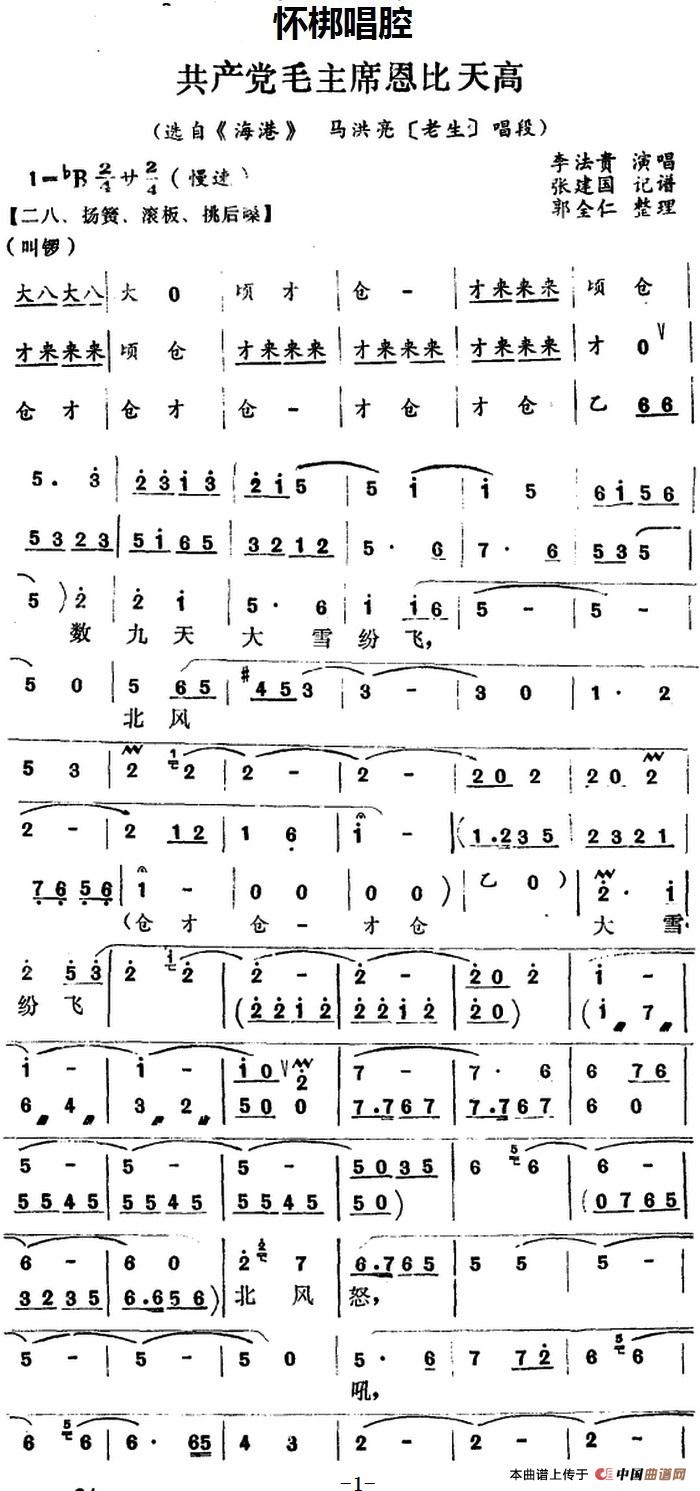 怀梆唱腔
共产党毛主席恩比天高
(选自《海港》 马洪亮〔老生〕唱段)
1=♭B 2/4 サ 2/4 (慢速)
李法贵 演唱
张建国 记谱
郭全仁 整理
【二八、扬簧、滚板、挑后嗓】
(叫锣)
大八大八 | 大 0 | 顷 才 | 仓 - | 才来来来 | 顷 仓 |
才来来来 | 顷 仓 | 才来来来 | 才来来来 | 才来来来 | 才 0 V |
仓 才 | 仓 才 | 仓 - | 才 仓 | 才 仓 | 乙 6 6 |
5. 3 | 2 3 1 3 | 2 1 5 | 5 1 | 1 5 | 6 1 5 6 |
5 3 2 3 | 5 1 6 5 | 3 2 1 2 | 5· 6 | 7· 6 | 5 3 5 |
5 ) 2 | 2 1 | 5· 6 | 1 1 6 | 5 - | 5 - |
数 九 天 大 雪 纷 飞,
5 0 | 5 6 5 | #4 5 3 | 3 - | 3 0 | 1· 2 |
北 风
5 3 | 2 1 2 | 2 - | 2 - | 2 0 2 | 2 0 2 |
2 - | 2 1 2 | 1 6 | 1 - | (1.2 3 5 | 2 3 2 1 |
7 6 5 6 | 1 - | 0 0 | 0 0 ) | 乙 0 ) | 2· 1 |
(仓 才 仓 - 才 仓 大 雪
2 5 3 | 2 1 2 | 2 - | 2 - | 2 0 2 | 1 - |
纷 飞 (2 2 1 2 | 2 2 1 2 | 2 0 ) (1 7
1 - | 1 - | 1 0 V 2 | 7 - | 7· 6 | 6 7 6 |
6 4 | 3 2 | 5 0 0 | 7.7 6 7 | 7.7 6 7 | 6 0 |
5 - | 5 - | 5 - | 5 0 3 5 | 6 5 6 | 6 - |
5 5 4 5 | 5 5 4 5 | 5 5 4 5 | 5 0 ) (0 7 6 5
6 - | 6 0 | 2 2 7 | 6.7 6 5 | 5 5 | 5 - |
3 2 3 5 | 6.6 5 6 ) | 北 风 怒,
5 - | 5 - | 5 0 | 5· 6 | 7 7 2 | 6 5 6 |
吼,
6 5 6 | 6· 6 5 | 4 3 | 2 - | 2 - | 2 - |
本曲谱上传于 中国曲谱网
-1-